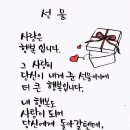 선물
사랑은
행복 입니다.
그 사랑이
당신이 내게 준 선물이기에
더 큰 행복입니다.
내 행복도
사랑이 되어
당신에게 돌아갈텐데,